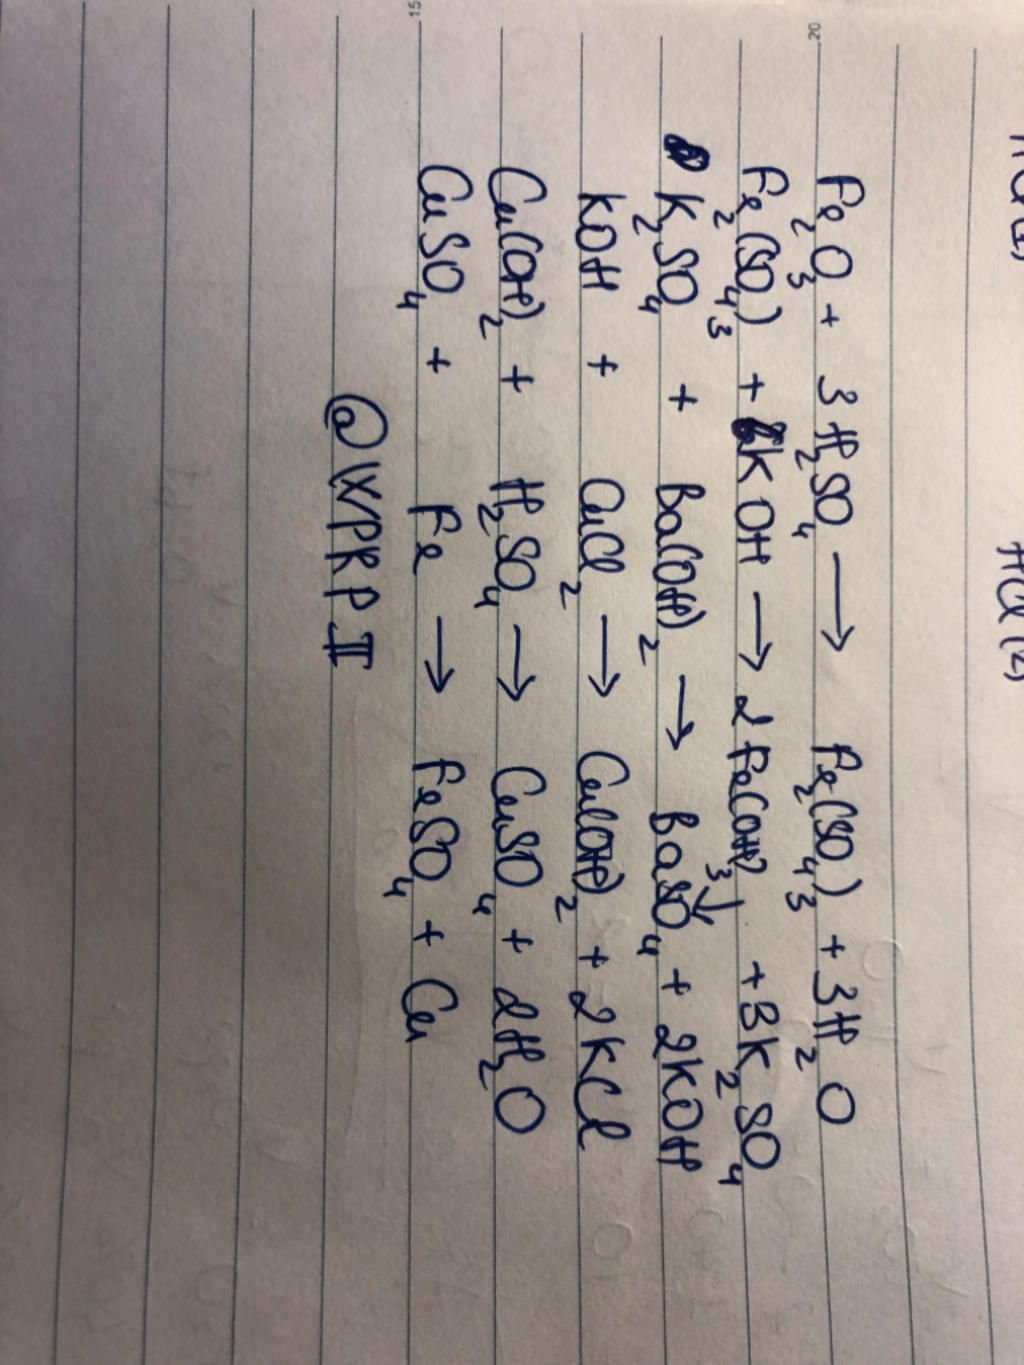 HCl (2)
20
Fe₂O₃ + 3H₂SO₄ → Fe₂(SO₄)₃ + 3H₂O
Fe₂(SO₄)₃ + 6KOH → 2Fe(OH)₃↓ + 3K₂SO₄
K₂SO₄ + Ba(OH)₂ → BaSO₄ + 2KOH
KOH + CuCl₂ → Cu(OH)₂ + 2KCl
Cu(OH)₂ + H₂SO₄ → CuSO₄ + 2H₂O
15
CuSO₄ + Fe → FeSO₄ + Cu
@WPKP II